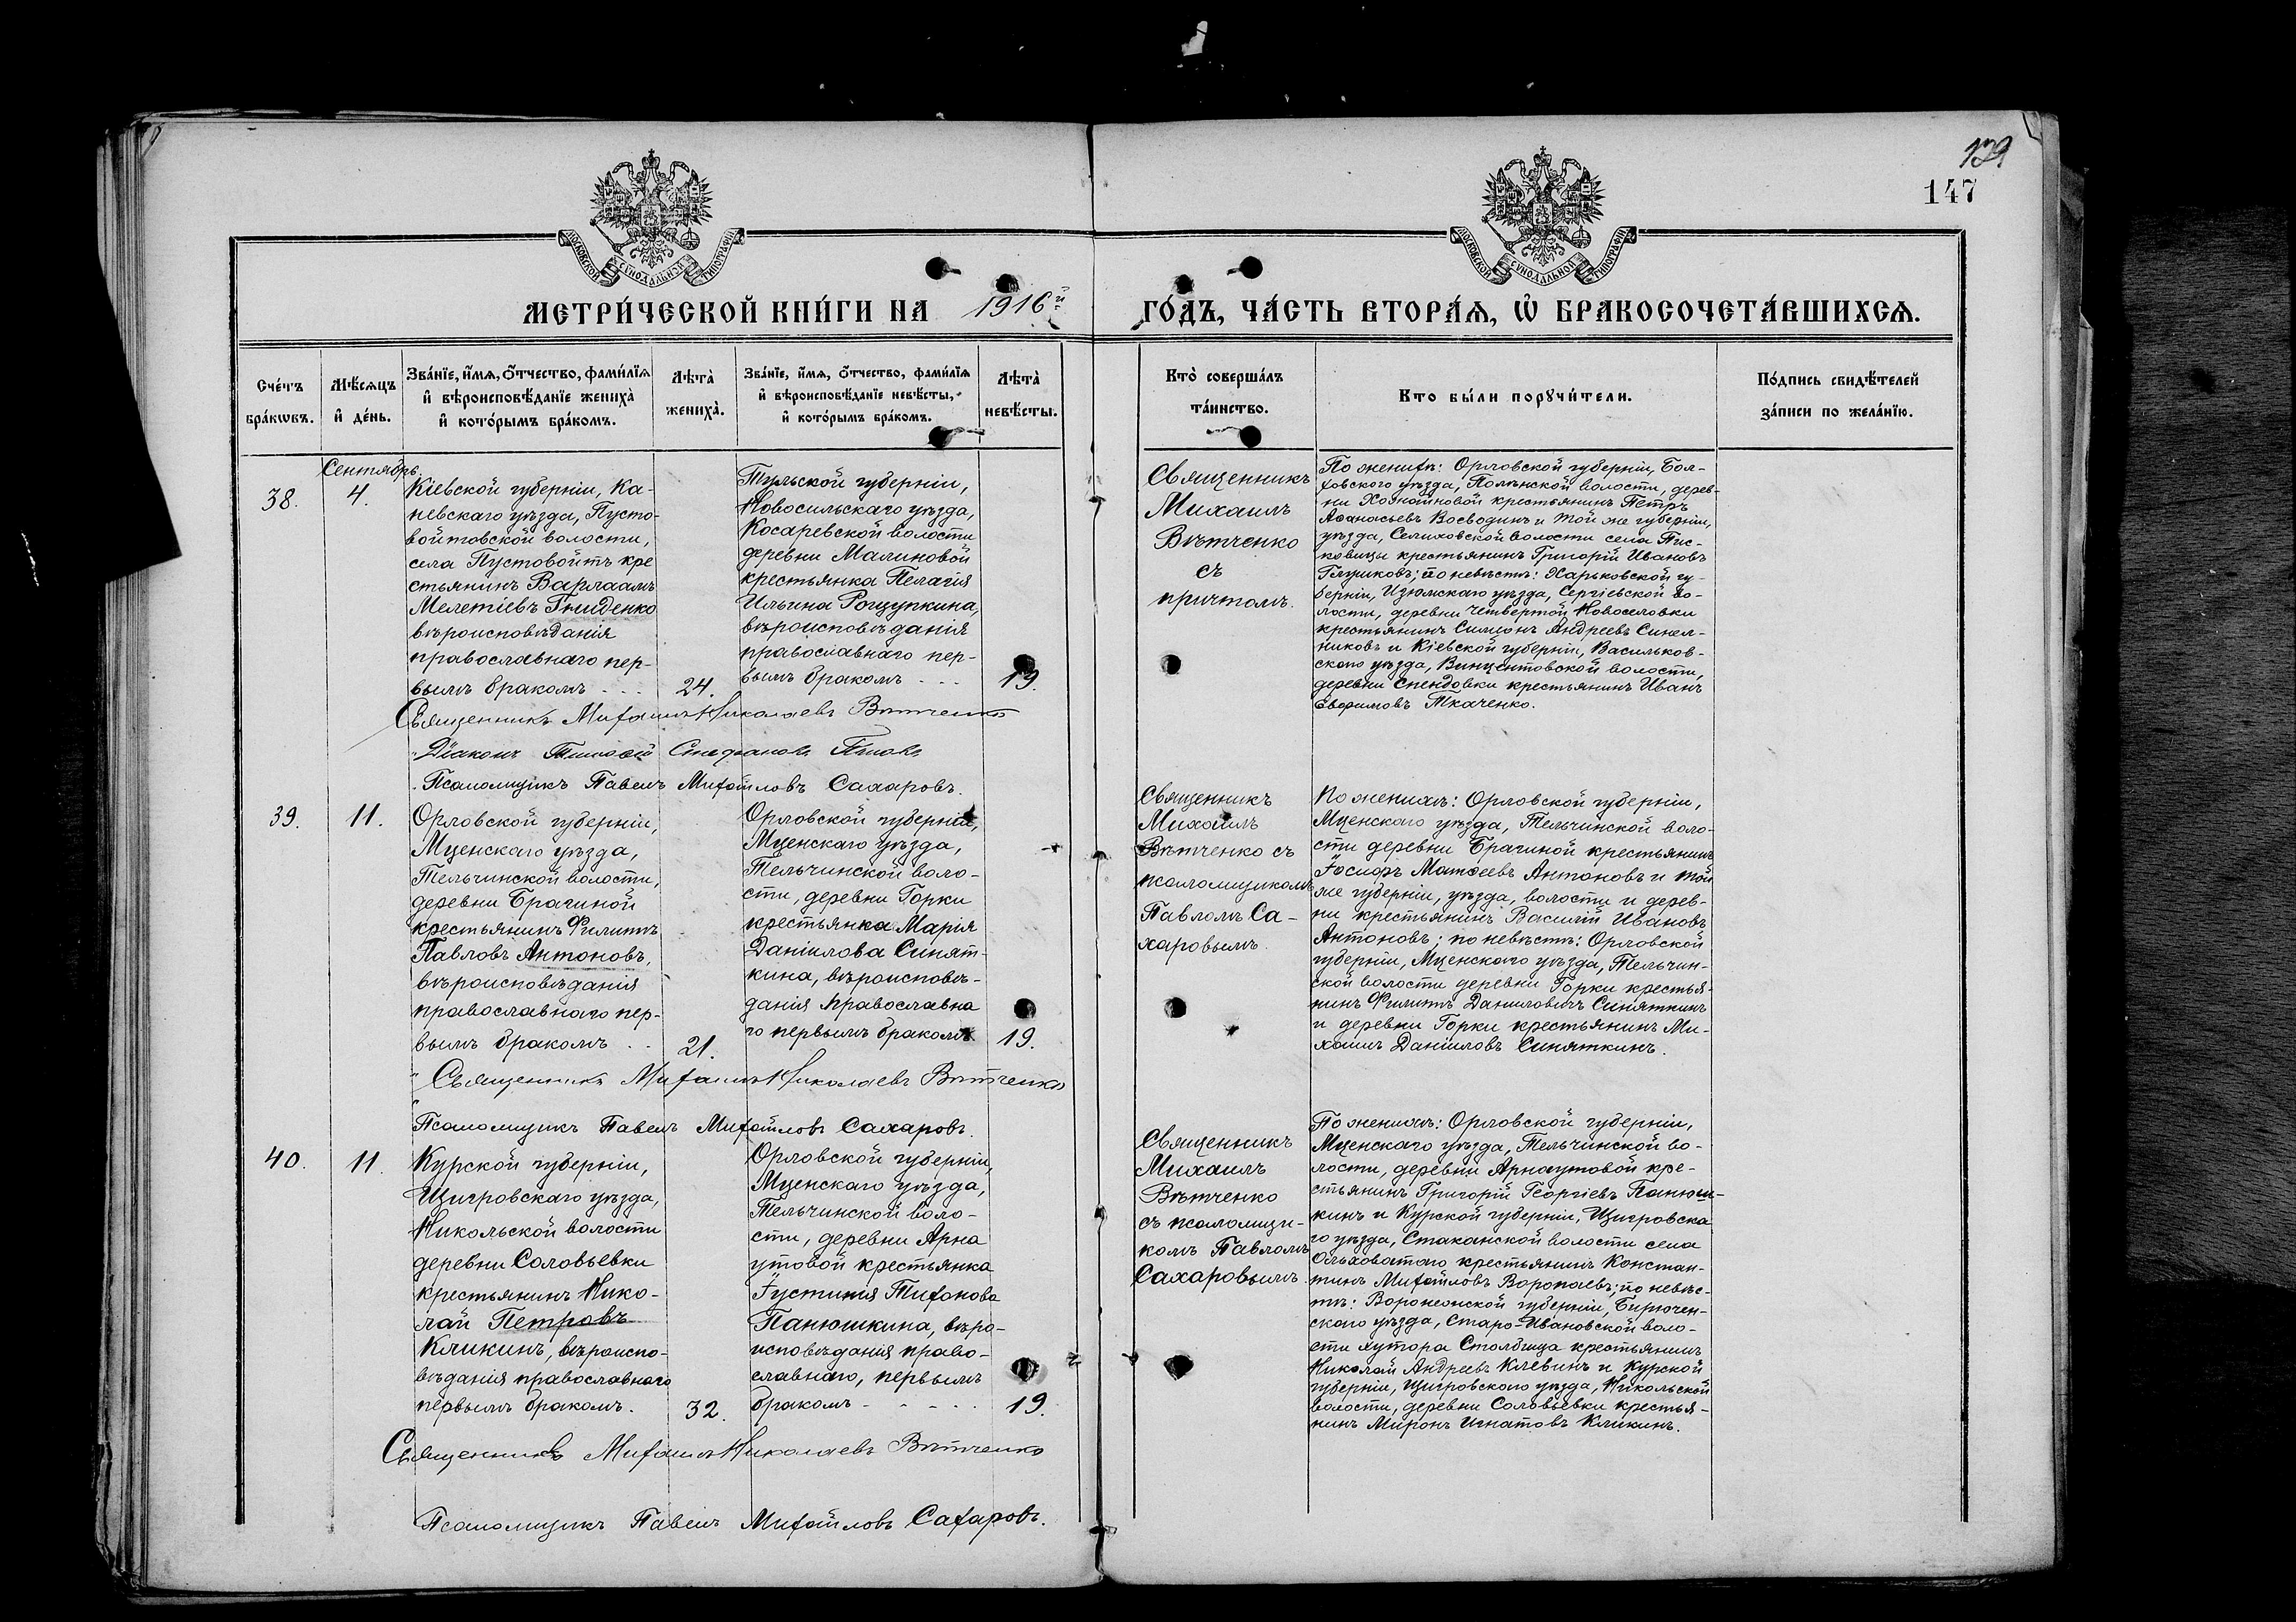 139
147
МОСКОВСКОЙ СѴНОДАЛЬНОЙ ТИПОГРАФІИ
МОСКОВСКОЙ СѴНОДАЛЬНОЙ ТИПОГРАФІИ
МЕТРИ́ЧЕСКОЙ КНИ́ГИ НА 1916й ГО́ДЪ, ЧА́СТЬ ВТОРА́Ѧ, Ѡ҆ БРАКОСОЧЕТА́ВШИХСѦ.
Сче́тъ бра́кѡвъ.
Мѣ́сѧцъ и҆ де́нь.
Зва́нїе, и҆́мѧ, ѻ҆́тчество, фами́лїѧ
и҆ вѣроисповѣ́данїе жениха̀
и҆ кото́рымъ бра́комъ.
Лѣта̀ жениха̀.
Зва́нїе, и҆́мѧ, ѻ҆́тчество, фами́лїѧ
и҆ вѣроисповѣ́данїе невѣ́сты,
и҆ кото́рымъ бра́комъ.
Лѣта̀ невѣ́сты.
Кто̀ соверша́лъ
та́инство.
Кто бы́ли порꙋчи́тели.
По́дпись свидѣ́телей
за́писи по жела́нїю.
Сентябрь.
38.
4.
Кіевской губерніи, Ка-
невскаго уѣзда, Пусто-
войтовской волости,
села Пустовойтъ кре
стьянинъ Варлаамъ
Мелетіевъ Гниденко
вѣроисповѣданія
православнаго пер-
вымъ бракомъ . . .
24.
Тульской губерніи,
Новосильскаго уѣзда,
Косаревской волости
деревни Малиновой
крестьянка Пелагія
Ильина Рощупкина,
вѣроисповѣданія
православнаго пер-
вымъ бракомъ . . .
19.
Священникъ
Михаилъ
Вѣтченко
съ
причтомъ.
По женихѣ: Орловской губерніи, Бол-
ховского уѣзда, Полънской волости, дерев-
ни Хознаиновой крестьянинъ Петръ
Аѳанасьевъ Воеводинъ и той же губерніи,
уѣзда, Селиховской волости села Пис-
ковицы крестьянинъ Григорій Ивановъ
Глушковъ; по невѣстѣ: Харьковской гу-
берніи, Изюмскаго уѣзда, Сергіевской во-
лости, деревни Четвертой Новоселовки
крестьянинъ Симеонъ Андреевъ Синел-
никовъ и Кіевской губерніи, Васильков-
скаго уѣзда, Винцентовской волости,
деревни Спендовки крестьянинъ Иванъ
Евѳимовъ Ткаченко.
Священникъ Михаилъ Николаевъ Вѣтченко
Діаконъ Стефановъ
Псаломщикъ Павелъ Михайловъ Сахаровъ.
39.
11.
Орловской губерніи,
Мценскаго уѣзда,
Тельчинской волости,
деревни Брагиной
крестьянинъ Филиппъ
Павловъ Антоновъ,
вѣроисповѣданія
православнаго пер-
вымъ бракомъ . .
21.
Орловской губерніи,
Мценскаго уѣзда,
Тельчинской воло-
сти, деревни Горки
крестьянка Марія
Даніилова Синят-
кина, вѣроисповѣ-
данія православна
го первымъ бракомъ
19.
Священникъ
Михаилъ
Вѣтченко съ
псаломщикомъ
Павломъ Са-
харовымъ.
По женихѣ: Орловской губерніи,
Мценскаго уѣзда, Тельчинской воло-
сти деревни Брагиной крестьянинъ
Іосифъ Матѳеевъ Антоновъ и той
же губерніи, уѣзда, волости и дерев-
ни крестьянинъ Василій Ивановъ
Антоновъ; по невѣстѣ: Орловской
губерніи, Мценскаго уѣзда, Тельчин-
ской волости деревни Горки крестья-
нинъ Филиппъ Даниловичъ Синяткинъ
и деревни Горки крестьянинъ Ми-
хаилъ Даніиловъ Синяткинъ.
Священникъ Михаилъ Николаевъ Вѣтченко
Псаломщикъ Павелъ Михайловъ Сахаровъ.
40.
11.
Курской губерніи,
Щигровскаго уѣзда,
Никольской волости
деревни Соловьевки
крестьянинъ Нико-
лай Петровъ
Кликинъ, вѣроиспо-
вѣданія православнаго
первымъ бракомъ.
32.
Орловской губерніи,
Мценскаго уѣзда,
Тельчинской воло-
сти, деревни Арна
утовой крестьянка
Іустинія Тихонова
Панюшкина, вѣро-
исповѣданія право-
славнаго, первымъ
бракомъ - - - . .
19.
Священникъ
Михаилъ
Вѣтченко
съ псаломщи-
комъ Павломъ
Сахаровымъ.
По женихѣ: Орловской губерніи,
Мценскаго уѣзда, Тельчинской во-
лости, деревни Арнаутовой кре-
стьянинъ Григорій Георгіевъ Панюш-
кинъ и Курской губерніи, Щигровска
го уѣзда, Стаканской волости села
Ольховатаго крестьянинъ Констан-
тинъ Михайловъ Воропаевъ; по невѣс-
тѣ: Воронежской губерніи, Бирючен-
скаго уѣзда, Старо-Ивановской воло-
сти хутора Столбища крестьянинъ
Николай Андреевъ Клевинъ и Курской
губерніи, Щигровского уѣзда, Никольской
волости, деревни Соловьевки крестья-
нинъ Миронъ Игнатовъ Кликинъ.
Священникъ Михаилъ Николаевъ Вѣтченко
Псаломщикъ Павелъ Михайловъ Сахаровъ.